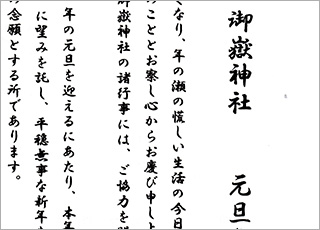 御嶽神社　元旦
くなり、年の瀬の慌しい生活の今日
のこととお察し心からお慶び申し
御嶽神社の諸行事には、ご協力を
年の元旦を迎えるにあたり、本年
に望みを託し、平穏無事な新年
の念願とする所であります。